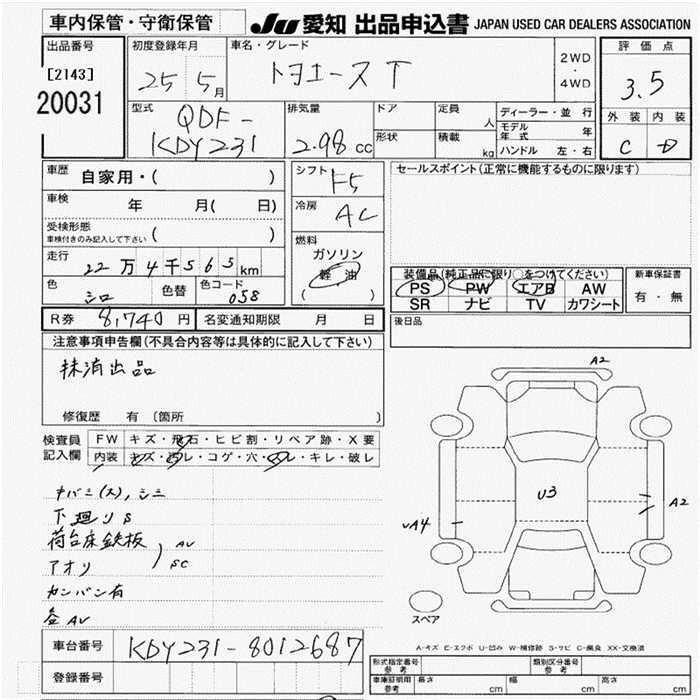 車内保管・守衛保管
JU 愛知 出品申込書 JAPAN USED CAR DEALERS ASSOCIATION
出品番号 初度登録年月 車名・グレード 評価点
[2143]
20031
25年 5月 トヨエース T 2WD ・ 4WD 3.5
型式 排気量 ドア 定員 人 ディーラー・並 行 外装 内装
QDF-KDY231 2.98 cc 形状 積載 kg モデル年式 年 C D
ハンドル 左・右
車歴 自家用・( ) シフト F5 セールスポイント(正常に機能するものに限ります)
車検 年 月( 日) 冷房 AC
受検形態 ( )
車検付きのみ記入して下さい
燃料
ガソリン
軽油
( )
走行 22万4千565km
装備品(純正品に限り○をつけてください) 新車保証書
PS PW エアB AW 有・無
SR ナビ TV カワシート
色 シロ 色替 色コード 058
R券 8,740円 名変通知期限 月 日 後日品
注意事項申告欄(不具合内容等は具体的に記入して下さい)
抹消出品
修復歴 有 (箇所 )
検査員 FW キズ・飛石・ヒビ割・リペア跡・X要
記入欄 内装 キズ・汚レ・コゲ・穴・スレ・キレ・破レ
キバミ(大), シミ
下廻りS
荷台床鉄板 AV
アオリ SC
カンバン有
各AV
A2
U3
A2
UA4
スペア
A-キズ E-エクボ U-凹み W-補修跡 S-サビ C-腐食 XX-交換済
車台番号 KDY231-8012687
登録番号
形式指定番号 参考 類別区分番号 参考
車庫証明用 参考 長さ cm 幅 cm 高さ cm